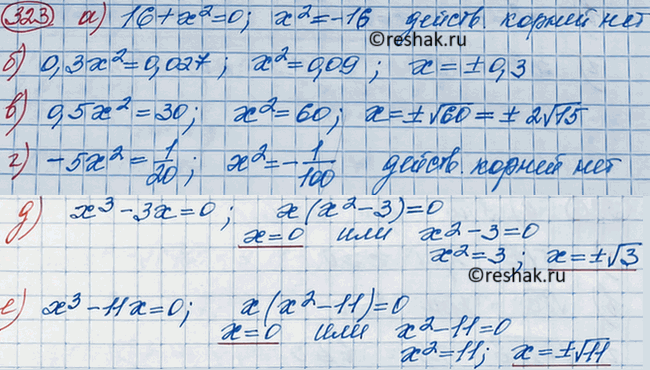 323 а) 16+x²=0; x²=-16 действ. корней нет
©reshak.ru
б) 0,3x²=0,027; x²=0,09; x=±0,3
в) 0,5x²=30; x²=60; x=±√60=±2√15
г) -5x²=1/20; x²=-1/100 действ. корней нет
д) x³-3x=0; x(x²-3)=0
x=0 или x²-3=0
x²=3; x=±√3
©reshak.ru
е) x³-11x=0; x(x²-11)=0
x=0 или x²-11=0
x²=11; x=±√11